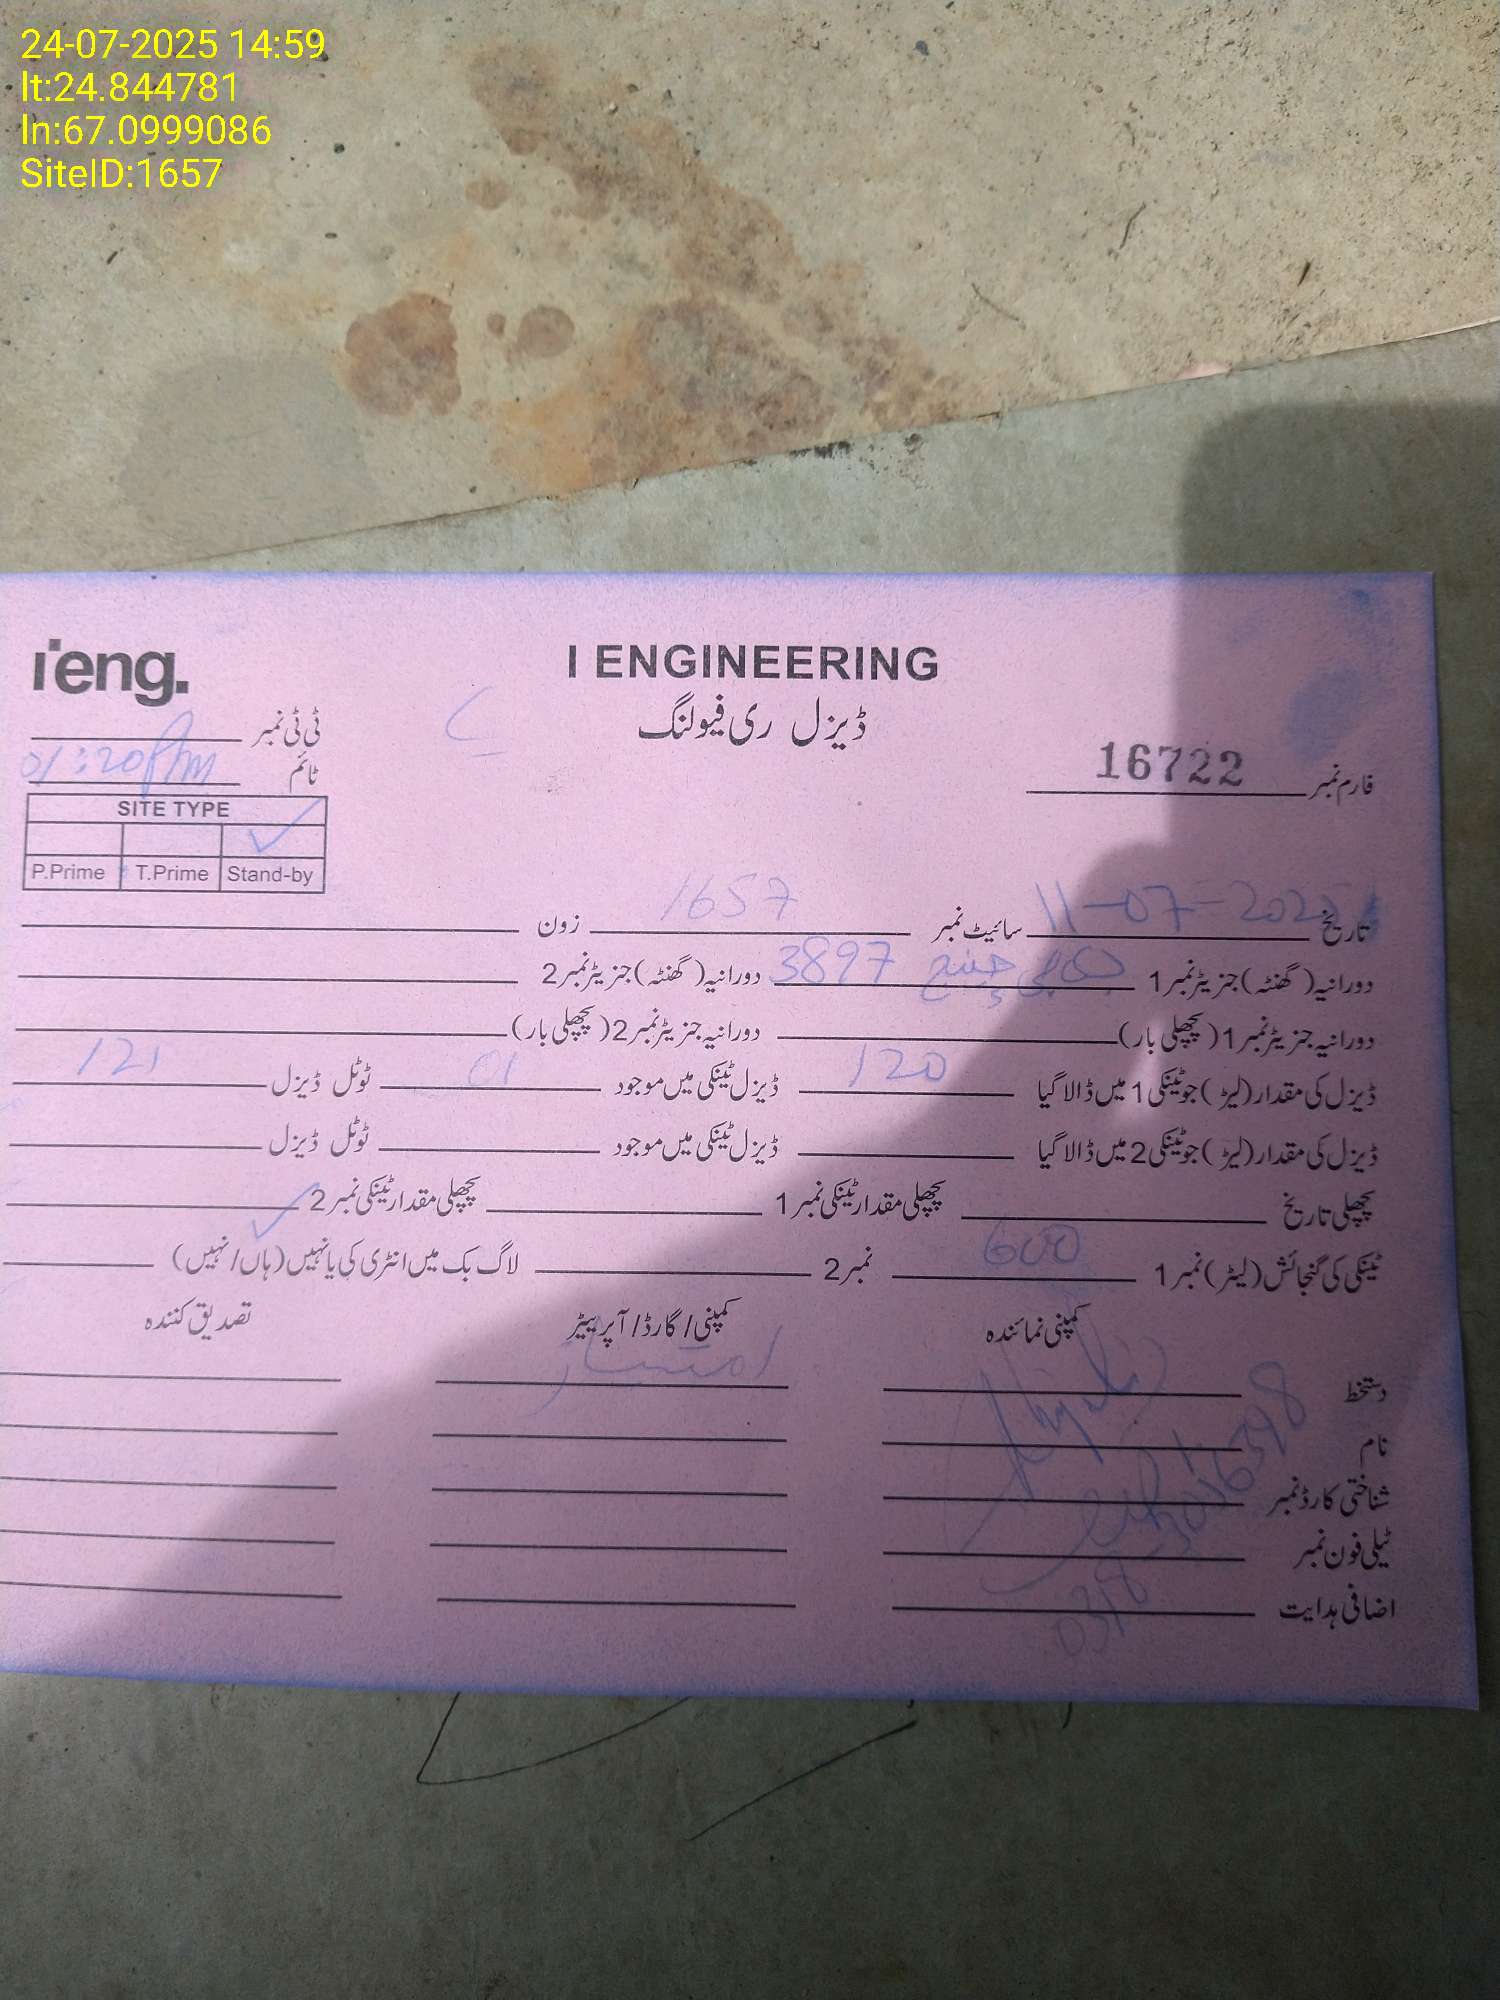 24-07-2025 14:59
lt:24.844781
ln:67.0999086
SiteID:1657
i'eng.
I ENGINEERING
ڈیزل ری فیولنگ
ٹی ٹی نمبر
ٹائم 01:20 Pm
فارم نمبر 16722
SITE TYPE
✓
P.Prime T.Prime Stand-by
تاریخ 11-07-2025 سائیٹ نمبر 1657 زون
دورانیہ (گھنٹہ) جنریٹر نمبر 1 3897 دورانیہ (گھنٹہ) جنریٹر نمبر 2
دورانیہ جنریٹر نمبر 1 (پچھلی بار) دورانیہ جنریٹر نمبر 2 (پچھلی بار)
ڈیزل کی مقدار (لیٹر) جو ٹینکی 1 میں ڈالا گیا 120 ڈیزل ٹینکی میں موجود 01 ٹوٹل ڈیزل 121
ڈیزل کی مقدار (لیٹر) جو ٹینکی 2 میں ڈالا گیا ڈیزل ٹینکی میں موجود ٹوٹل ڈیزل
پچھلی تاریخ پچھلی مقدار ٹینکی نمبر 1 پچھلی مقدار ٹینکی نمبر 2
ٹینکی کی گنجائش (لیٹر) نمبر 1 600 نمبر 2 لاگ بک میں انٹری کی یا نہیں (ہاں / نہیں) ✓
کمپنی نمائندہ کمپنی / گارڈ / آپریٹر تصدیق کنندہ
دستخط
نام
شناختی کارڈ نمبر
ٹیلی فون نمبر
اضافی ہدایت